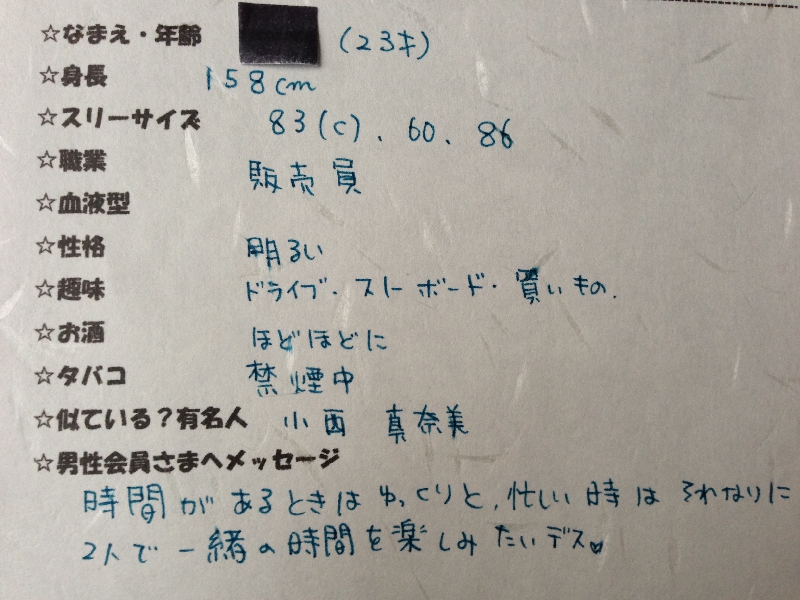 ☆なまえ・年齢 (23才)
☆身長 158cm
☆スリーサイズ 83(C)、60、86
☆職業 販売員
☆血液型
☆性格 明るい
☆趣味 ドライブ・スノーボード・買いもの.
☆お酒 ほどほどに
☆タバコ 禁煙中
☆似ている?有名人 小西 真奈美
☆男性会員さまへメッセージ
時間があるときはゆっくりと、忙しい時はそれなりに
2人で一緒の時間を楽しみたいデス♥